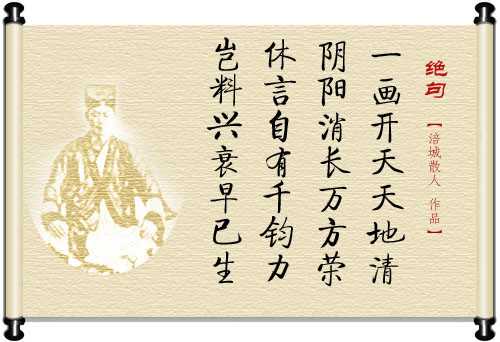 绝句
【涪城散人 作品】
一画开天天地清
阴阳消长万方荣
休言自有千钧力
岂料兴衰早已生